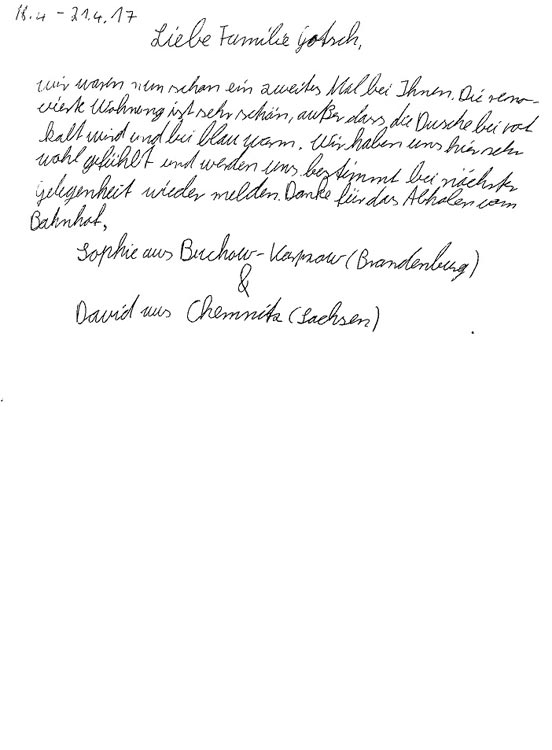 18.4 - 21.4.17
Liebe Familie Gotsch,
wir waren nun schon ein zweites Mal bei Ihnen. Die reno-
vierte Wohnung ist sehr schön, außer dass die Dusche bei rot
kalt wird und bei blau warm. Wir haben uns hier sehr
wohl gefühlt und werden uns bestimmt bei nächster
Gelegenheit wieder melden. Danke für das Abholen vom
Bahnhof,
Sophie aus Buchow-Karpzow (Brandenburg)
&
David aus Chemnitz (Sachsen)